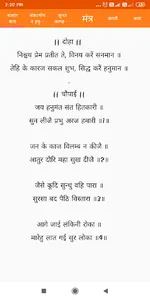 2:20 PM
मंत्र
|| दोहा ||
निश्चय प्रेम प्रतीत ते, विनय करें सनमान ॥
तेहि के कारज सकल शुभ, सिद्ध करैं हनुमान ॥
|| चौपाई ||
जय हनुमंत संत हितकारी ॥
सुन लीजै प्रभु अरज हमारी ॥1॥
जन के काज विलम्ब न कीजै ॥
आतुर दोरि महा सुख दीजै ॥2॥
जैसे कूदि सुन्धु वहि पारा ॥
सुरसा बद पैठि विस्तारा ॥3॥
आगे जाई लंकिनी रोका ॥
मारेहु लात गई सुर लोका ॥4॥